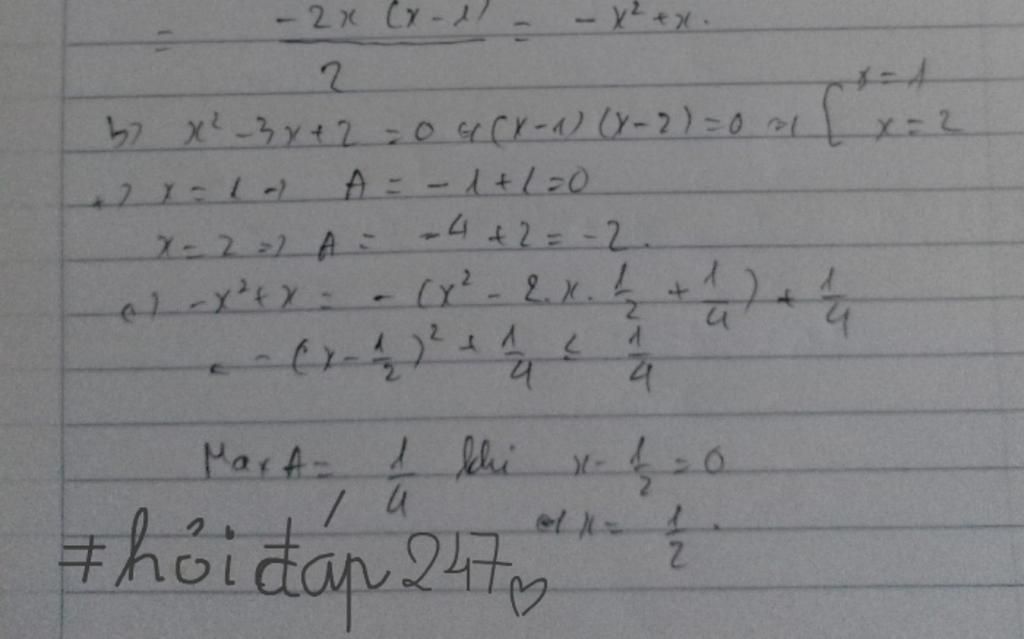 = \frac{-2x(x-1)}{2} = -x² + x.
b) x² - 3x + 2 = 0 ⇔ (x-1)(x-2) = 0 ⇒ [ x = 1
x = 2
+) x = 1 ⇒ A = -1 + 1 = 0
x = 2 ⇒ A = -4 + 2 = -2.
c) -x² + x = -(x² - 2.x.\frac{1}{2} + \frac{1}{4}) + \frac{1}{4}
= -(x - \frac{1}{2})² + \frac{1}{4} ≤ \frac{1}{4}
Max A = \frac{1}{4} khi x - \frac{1}{2} = 0
⇔ x = \frac{1}{2}.
#hỏi đáp 247♡